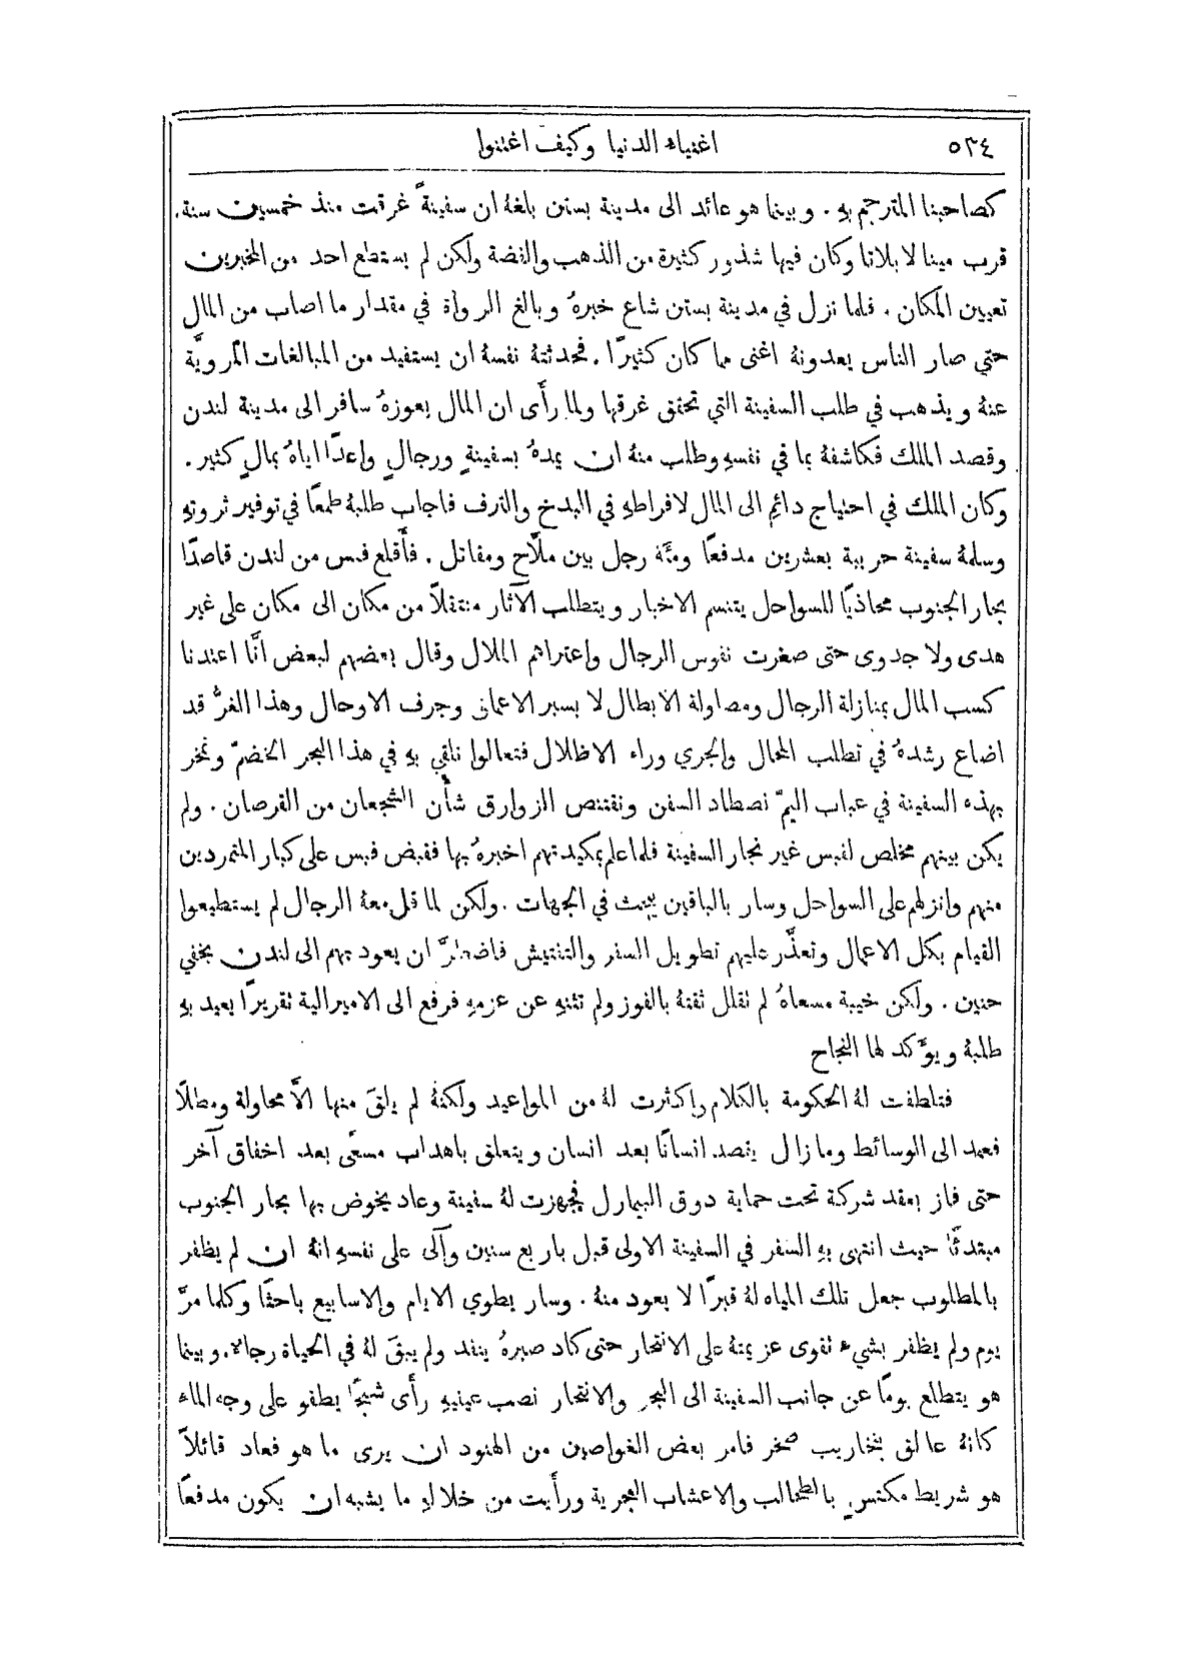 ٥٣٤
اغنياء الدنيا وكيف اغتنوا
كصاحبنا المترجم بهِ . وبينما هو عائد الى مدينة بستن بلغهُ ان سفينةً غرقت منذ خمسين سنة.
قرب مينا لابلاتا وكان فيها شذور كثيرة من الذهب والفضة ولكن لم يستطع احد من المخبرين
تعيين المكان . فلما نزل في مدينة بستن شاع خبرهُ وبالغ الرواة في مقدار ما اصاب من المال
حتي صار الناس يعدونهُ اغنى مما كان كثيرًا . فحدثتهُ نفسهُ ان يستفيد من المبالغات المرويَّة
عنهُ ويذهب في طلب السفينة التي تحقق غرقها ولما رأى ان المال يعوزهُ سافر الى مدينة لندن
وقصد الملك فكاشفهُ بما في نفسهِ وطلب منهُ ان يمدهُ بسفينةٍ ورجالٍ واعدًا اياهُ بمالٍ كثير .
وكان الملك في احتياج دائمٍ الى المال لافراطهِ في البذخ والترف فاجاب طلبهُ طمعًا في توفير ثروتهِ
وسلمهُ سفينة حربية بعشرين مدفعًا ومئة رجل بين ملَّاح ومقاتل . فأقلع فبس من لندن قاصدًا
بحار الجنوب محاذيًا للسواحل يتنسم الاخبار ويتطلب الآثار منتقلاً من مكان الى مكان على غير
هدى ولا جدوى حتى صغرت نفوس الرجال واعتراهم الملال وقال بعضهم لبعض انَّا اعتدنا
كسب المال بمنازلة الرجال ومصاولة الابطال لا بسبر الاعماق وجرف الاوحال وهذا الغرُّ قد
اضاع رشدهُ في تطلب المحال والجري وراء الاظلال فتعالوا نلقي بهِ في هذا البحر الخضمّ ونمخر
بهذه السفينة في عباب اليمّ نصطاد السفن ونقتنص الزوارق شأن الشجعان من القرصان . ولم
يكن بينهم مخلص لفبس غير نجار السفينة فلما علم بمكيدتهم اخبرهُ بها فقبض فبس على كبار المتمردين
منهم وانزلهم على السواحل وسار بالباقين يبحث في الجهات . ولكن لما قل معهُ الرجال لم يستطيعوا
القيام بكل الاعمال وتعذَّر عليهم تطويل السفر والتفتيش فاضطرَّ ان يعود بهم الى لندن بخفي
حنين . ولكن خيبة مسعاهُ لم تقلل ثقتهُ بالفوز ولم تثنهِ عن عزمهِ فرفع الى الاميرالية تقريرًا يعيد بهِ
طلبهُ ويؤَكد لها النجاح
فتلطفت لهُ الحكومة بالكلام واكثرت لهُ من المواعيد ولكنهُ لم يلقَ منها الاَّ محاولة ومطلاً
فعمد الى الوسائط وما زال يقصد انسانًا بعد انسان ويتعلق باهداب مسعًى بعد اخفاق آخر
حتى فاز بعقد شركة تحت حماية دوق البيمارل فجهزت لهُ سفينة وعاد يخوض بها بحار الجنوب
مبتدئًا حيث انتهى بهِ السفر في السفينة الاولى قبل باربع سنين وآلى على نفسهِ انهُ ان لم يظفر
بالمطلوب جعل تلك المياه لهُ قبرًا لا يعود منهُ . وسار يطوي الايام والاسابيع باحثًا وكلما مرَّ
يوم ولم يظفر بشيءٍ تقوى عزيمتهُ على الانتحار حتى كاد صبرهُ ينفد ولم يبقَ لهُ في الحياة رجاء. وبينما
هو يتطلع يومًا عن جانب السفينة الى البحر والانتحار نصب عينيهِ رأَى شبحًا يطفو على وجه الماء
كانهُ عالق بخاريب صخر فامر بعض الغواصين من الهنود ان يرى ما هو فعاد قائلاً
هو شريط مكتسٍ بالطحالب والاعشاب البحرية ورأَيت من خلالهِ ما يشبه ان يكون مدفعًا